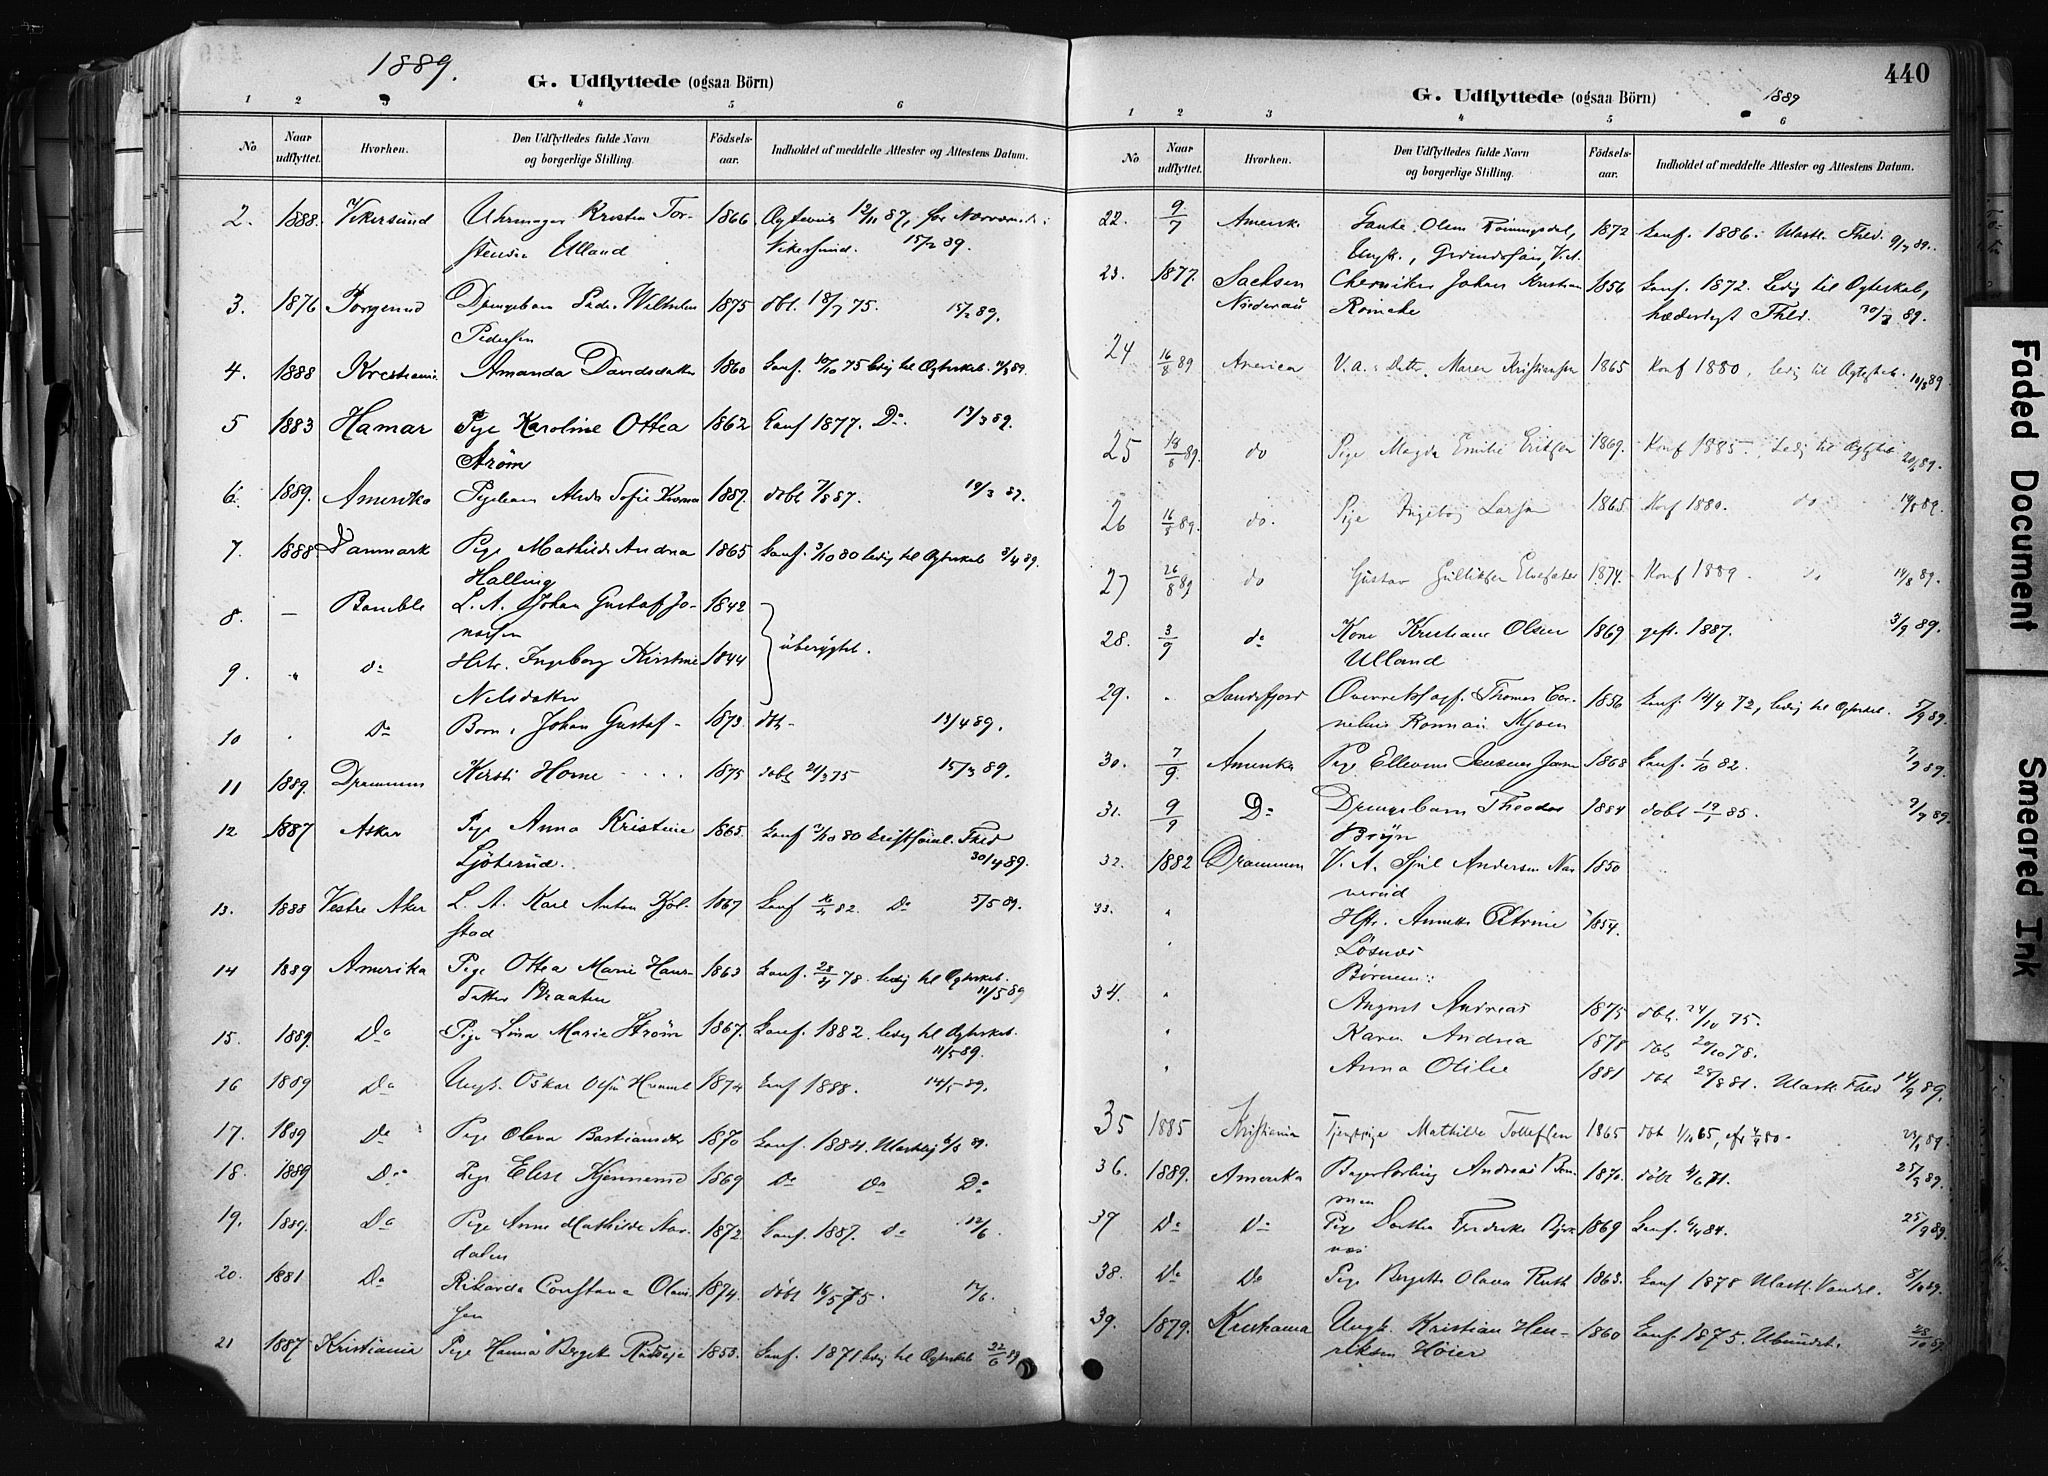 1889.
G. Udflyttede (ogsaa Börn)
1 2 3 4 5 6
No Naar udflyttet. Hvorhen. Den Udflyttedes fulde Navn og borgerlige Stilling. Födsels-aar. Indholdet af meddelte Attester og Attestens Datum.
2. 1888. Vikersund Uhrmager Kristen Tor- 1866
Ulland Vikersund. 15/2 89.
3. 1876 Porsgrund Drengebarn Wilhelm 1875 döbt. 18/7 75. 15/2 89.
Pedersen
4. 1888 Kristiania Amanda Davidsdatter 1860 Conf. 10/10 75 ledig til Ægteskab
5 1883 Hamar Pige Karoline Ottea 1862 Conf 1877. Do 13/3 89.
Ström
6. 1889. Amerika Pigebarn Sofie 1887. döbt 7/8 87. 19/3 89.
7. 1888 Danmark Pige Mathilde Andrea 1865 Conf. 3/10 80 ledig til Ægteskab 3/4 89.
Halling
8. — Bamble L. A. Johan Gustaf Jo- 1842
nassen
9. " do Hstr. Ingeborg Kirstine 1844 uberygtet.
Nilsdatter
10 Do Born: Johan Gustaf - 1873. döbt- 13/4 89.
11 1889. Drammen Kirsti Horne 1875 döbt 21/3 75 15/3 89.
12 1887 Asker Pige Anna Kristine 1865. Conf 80
Sjöterud. 30/4 89.
13. 1888 Vestre Aker L. A. Karl Anton Kjöl- 1867 Conf 82. Do 5/5 89.
stad
14 1889 Amerika Pige Ottea Marie Hans- 1863 Conf. 78. ledig til Ægteskab.
datter Braaten 11/5 89
15. 1889. Do Pige Lina Marie Ström 1867. Conf. 1882. ledig til Ægteskab.
11/5 89.
16 1889 Do Ungk. Oskar Olsen 1874 Conf 1888. 14/5 89.
17. 1889 Do Pige Olava Bastiansdtr 1870 Conf. 1884.
18. 1889 Do Pige Elise Kjennerud 1869 Do Do Do
19. 1889. Do Pige Anne Mathilde 1872. Conf. 1887. do 12/6
dalen
20. 1881 Do Rikarda Constance Olavi- 1874. döbt 16/5 75. 17/6.
sen
21 1887 Kristiania Pige Hanna Bergitte 1853. Conf. 1871 ledig til Ægteskab 22/6 89
440
G. Udflyttede (ogsaa Börn) 1889
1 2 3 4 5 6
No Naar udflyttet. Hvorhen. Den Udflyttedes fulde Navn og borgerlige Stilling. Födsels-aar. Indholdet af meddelte Attester og Attestens Datum.
22. 9/7 Amerika Gunte Olsen 1872 Conf. 1886. 9/7 89.
Ungk.,
23. 1877. Sachsen Chemiker Johan Kristian 1856 Conf. 1872. Ledig til Ægteskab,
Niederau Reinicke hæderligt
24 16/8 89 America V. a. Maren Kristiansen 1865 Konf 1880, ledig til Ægteskab.
25 18/8 89. do Pige Magda Emilie Eriksen 1869. Konf 1885. Ledig til Ægteskab
26 16/8 89. do. Pige Ingeborg Larsen 1865 Konf 1880. do 14/8 89.
27 26/8 89 do Gustav Gulliksen 1874. Konf 1889. do 14/8 89.
28. 3/9 do Kone Kristiane Olsen 1869 gift. 1887. 3/9 89.
Ulland
29. Sandefjord Overretssagf. Thomas Cor- 1856 Conf. 14/4 72, ledig til Ægteskab. 5/9 89.
nelius Mjöen
30. 7/9. Amerika Pige Ellevine 1868 Conf. 1/10 82. 7/9 89.
31. 9/9 Do Drengebarn Theodor 1884 döbt 85. 9/9 89.
Bryn
32. 1882 Drammen V. A. Andersen Nar- 1850
verud
33. " Hstr. Annette Petrine 1854.
Lösnæs
Börnene:
34. " August Andreas 1875 döbt. 24/10 75.
" Karen Andrea 1878 döbt 20/10 78.
" Anna Otilie 1881 döbt 28/8 81. 14/9 89.
35 1885 Kristiania Mathilde Tollefsen 1865 döbt 65, 80. 23/9 89.
36. 1889. Amerika Bagerlærling Andreas 1870. döbt 71. 25/9 89.
37 Do Do Pige Dorthea Fredrikke 1869 Conf. 84. 25/9 89.
38. Do Do Pige Bergitte Olava Ruth 1863. Conf 1878 Vandel. 8/10 89.
39. 1879. Kristiania Ungk. Kristian Hen- 1860 Conf. 1875. Ubundet. 28/10 89.
riksen Höier
Faded Document
Smeared Ink